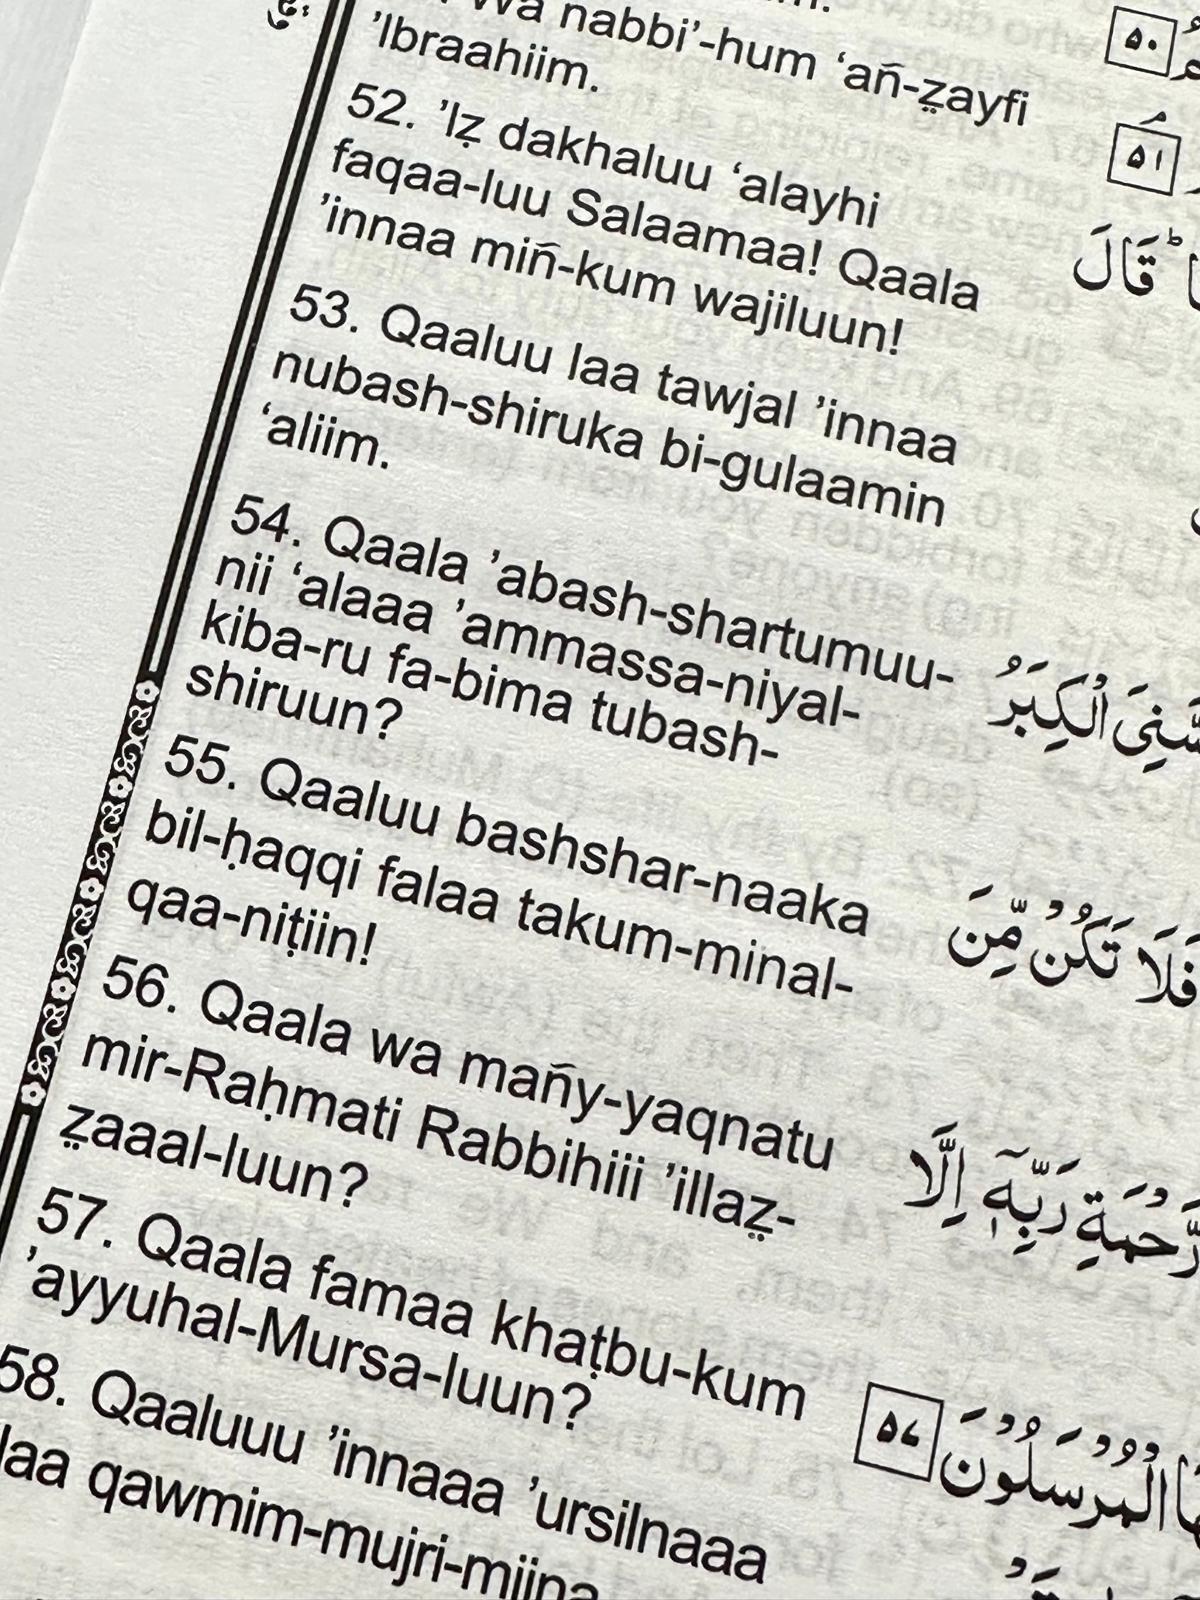 Wa nabbi’-hum ‘añ-ẓayfi
’Ibraahiim.
52. ’Iẓ dakhaluu ‘alayhi
faqaa-luu Salaamaa! Qaala
’innaa miñ-kum wajiluun!
53. Qaaluu laa tawjal ’innaa
nubash-shiruka bi-gulaamin
‘aliim.
54. Qaala ’abash-shartumuu-
nii ‘alaaa ’ammassa-niyal-
kiba-ru fa-bima tubash-
shiruun?
55. Qaaluu bashshar-naaka
bil-ḥaqqi falaa takum-minal-
qaa-niṭiin!
56. Qaala wa mañy-yaqnatu
mir-Raḥmati Rabbihiii ’illaẓ-
ẓaaal-luun?
57. Qaala famaa khaṭbu-kum
’ayyuhal-Mursa-luun?
58. Qaaluuu ’innaaa ’ursilnaaa
laa qawmim-mujri-miina
۵۰
۵۱
قَالَ
الْكِبَرُ
فَلَا تَكُنْ مِّنَ
رَّحْمَةِ رَبِّهٖٓ اِلَّا
الْمُرْسَلُوْنَ ۵۷